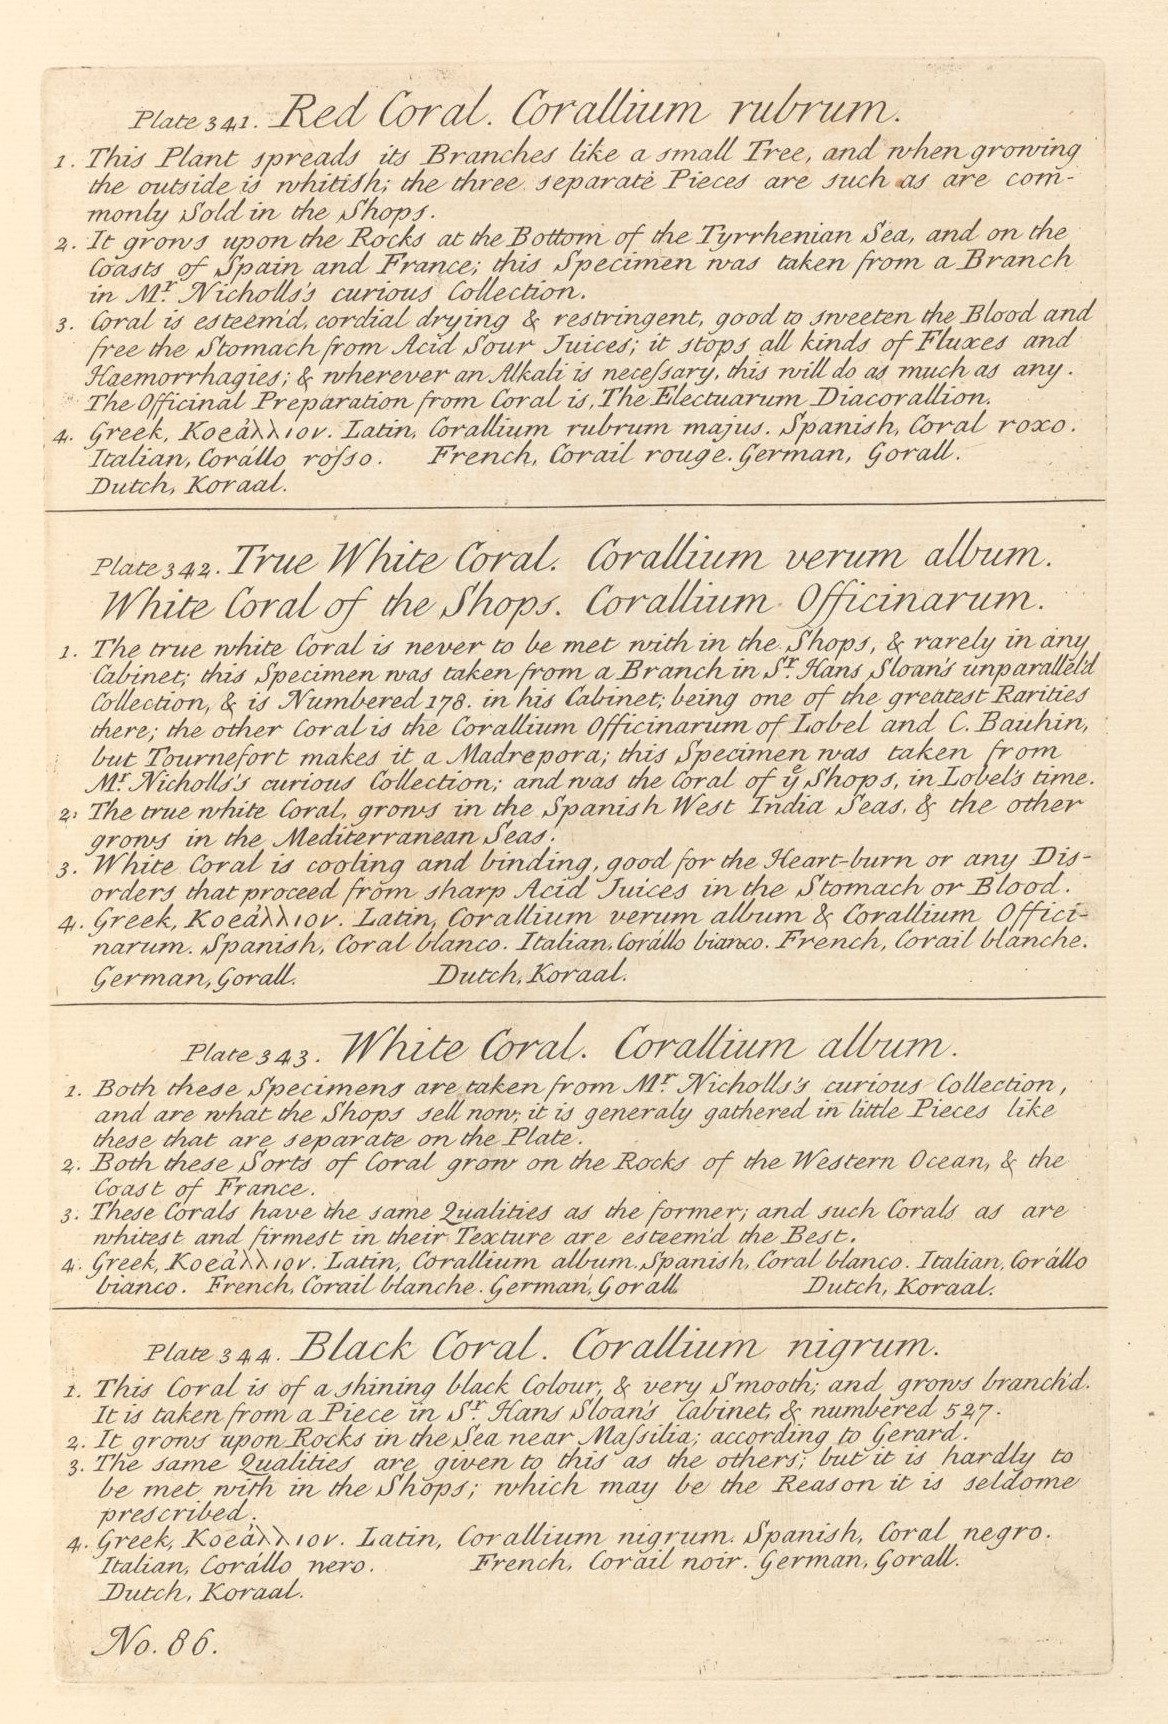 Plate 341. Red Coral. Corallium rubrum.
1. This Plant spreads its Branches like a small Tree, and when growing
the outside is whitish; the three separate Pieces are such as are com-
monly Sold in the Shops.
2. It grows upon the Rocks at the Bottom of the Tyrrhenian Sea, and on the
Coasts of Spain and France; this Specimen was taken from a Branch
in Mr. Nicholls's curious Collection.
3. Coral is esteem'd, cordial drying & restringent, good to sweeten the Blood and
free the Stomach from Acid Sour Juices; it stops all kinds of Fluxes and
Haemorrhagies; & wherever an Alkali is neceſsary, this will do as much as any.
The Officinal Preparation from Coral is, The Electuarum Diacorallion.
4. Greek, Κοεάλλιον. Latin, Corallium rubrum majus. Spanish, Coral roxo.
Italian, Corállo roſso. French, Corail rouge. German, Gorall.
Dutch, Koraal.
Plate 342. True White Coral. Corallium verum album.
White Coral of the Shops. Corallium Officinarum.
1. The true white Coral is never to be met with in the Shops, & rarely in any
Cabinet; this Specimen was taken from a Branch in Sr. Hans Sloan's unparallel'd
Collection, & is Numbered 178. in his Cabinet; being one of the greatest Rarities
there; the other Coral is the Corallium Officinarum of Lobel and C. Bauhin,
but Tournefort makes it a Madrepora; this Specimen was taken from
Mr. Nicholls's curious Collection; and was the Coral of ye Shops, in Lobel's time.
2. The true white Coral, grows in the Spanish West India Seas, & the other
grows in the Mediterranean Seas.
3. White Coral is cooling and binding, good for the Heart-burn or any Dis-
orders that proceed from sharp Acid Juices in the Stomach or Blood.
4. Greek, Κοεάλλιον. Latin, Corallium verum album & Corallium Offici-
narum. Spanish, Coral blanco. Italian, Corállo bianco. French, Corail blanche.
German, Gorall. Dutch, Koraal.
Plate 343. White Coral. Corallium album.
1. Both these Specimens are taken from Mr. Nicholls's curious Collection,
and are what the Shops sell now; it is generaly gathered in little Pieces like
these that are separate on the Plate.
2. Both these Sorts of Coral grow on the Rocks of the Western Ocean, & the
Coast of France.
3. These Corals have the same Qualities as the former; and such Corals as are
whitest and firmest in their Texture are esteem'd the Best.
4. Greek, Κοεάλλιον. Latin, Corallium album. Spanish, Coral blanco. Italian, Corállo
bianco. French, Corail blanche. German, Gorall. Dutch, Koraal.
Plate 344. Black Coral. Corallium nigrum.
1. This Coral is of a shining black Colour, & very Smooth; and grows branch'd.
It is taken from a Piece in Sr. Hans Sloan's Cabinet, & numbered 527.
2. It grows upon Rocks in the Sea near Maſsilia; according to Gerard.
3. The same Qualities are given to this as the others; but it is hardly to
be met with in the Shops; which may be the Reason it is seldome
prescribed.
4. Greek, Κοεάλλιον. Latin, Corallium nigrum. Spanish, Coral negro.
Italian, Corállo nero. French, Corail noir. German, Gorall.
Dutch, Koraal.
No. 86.